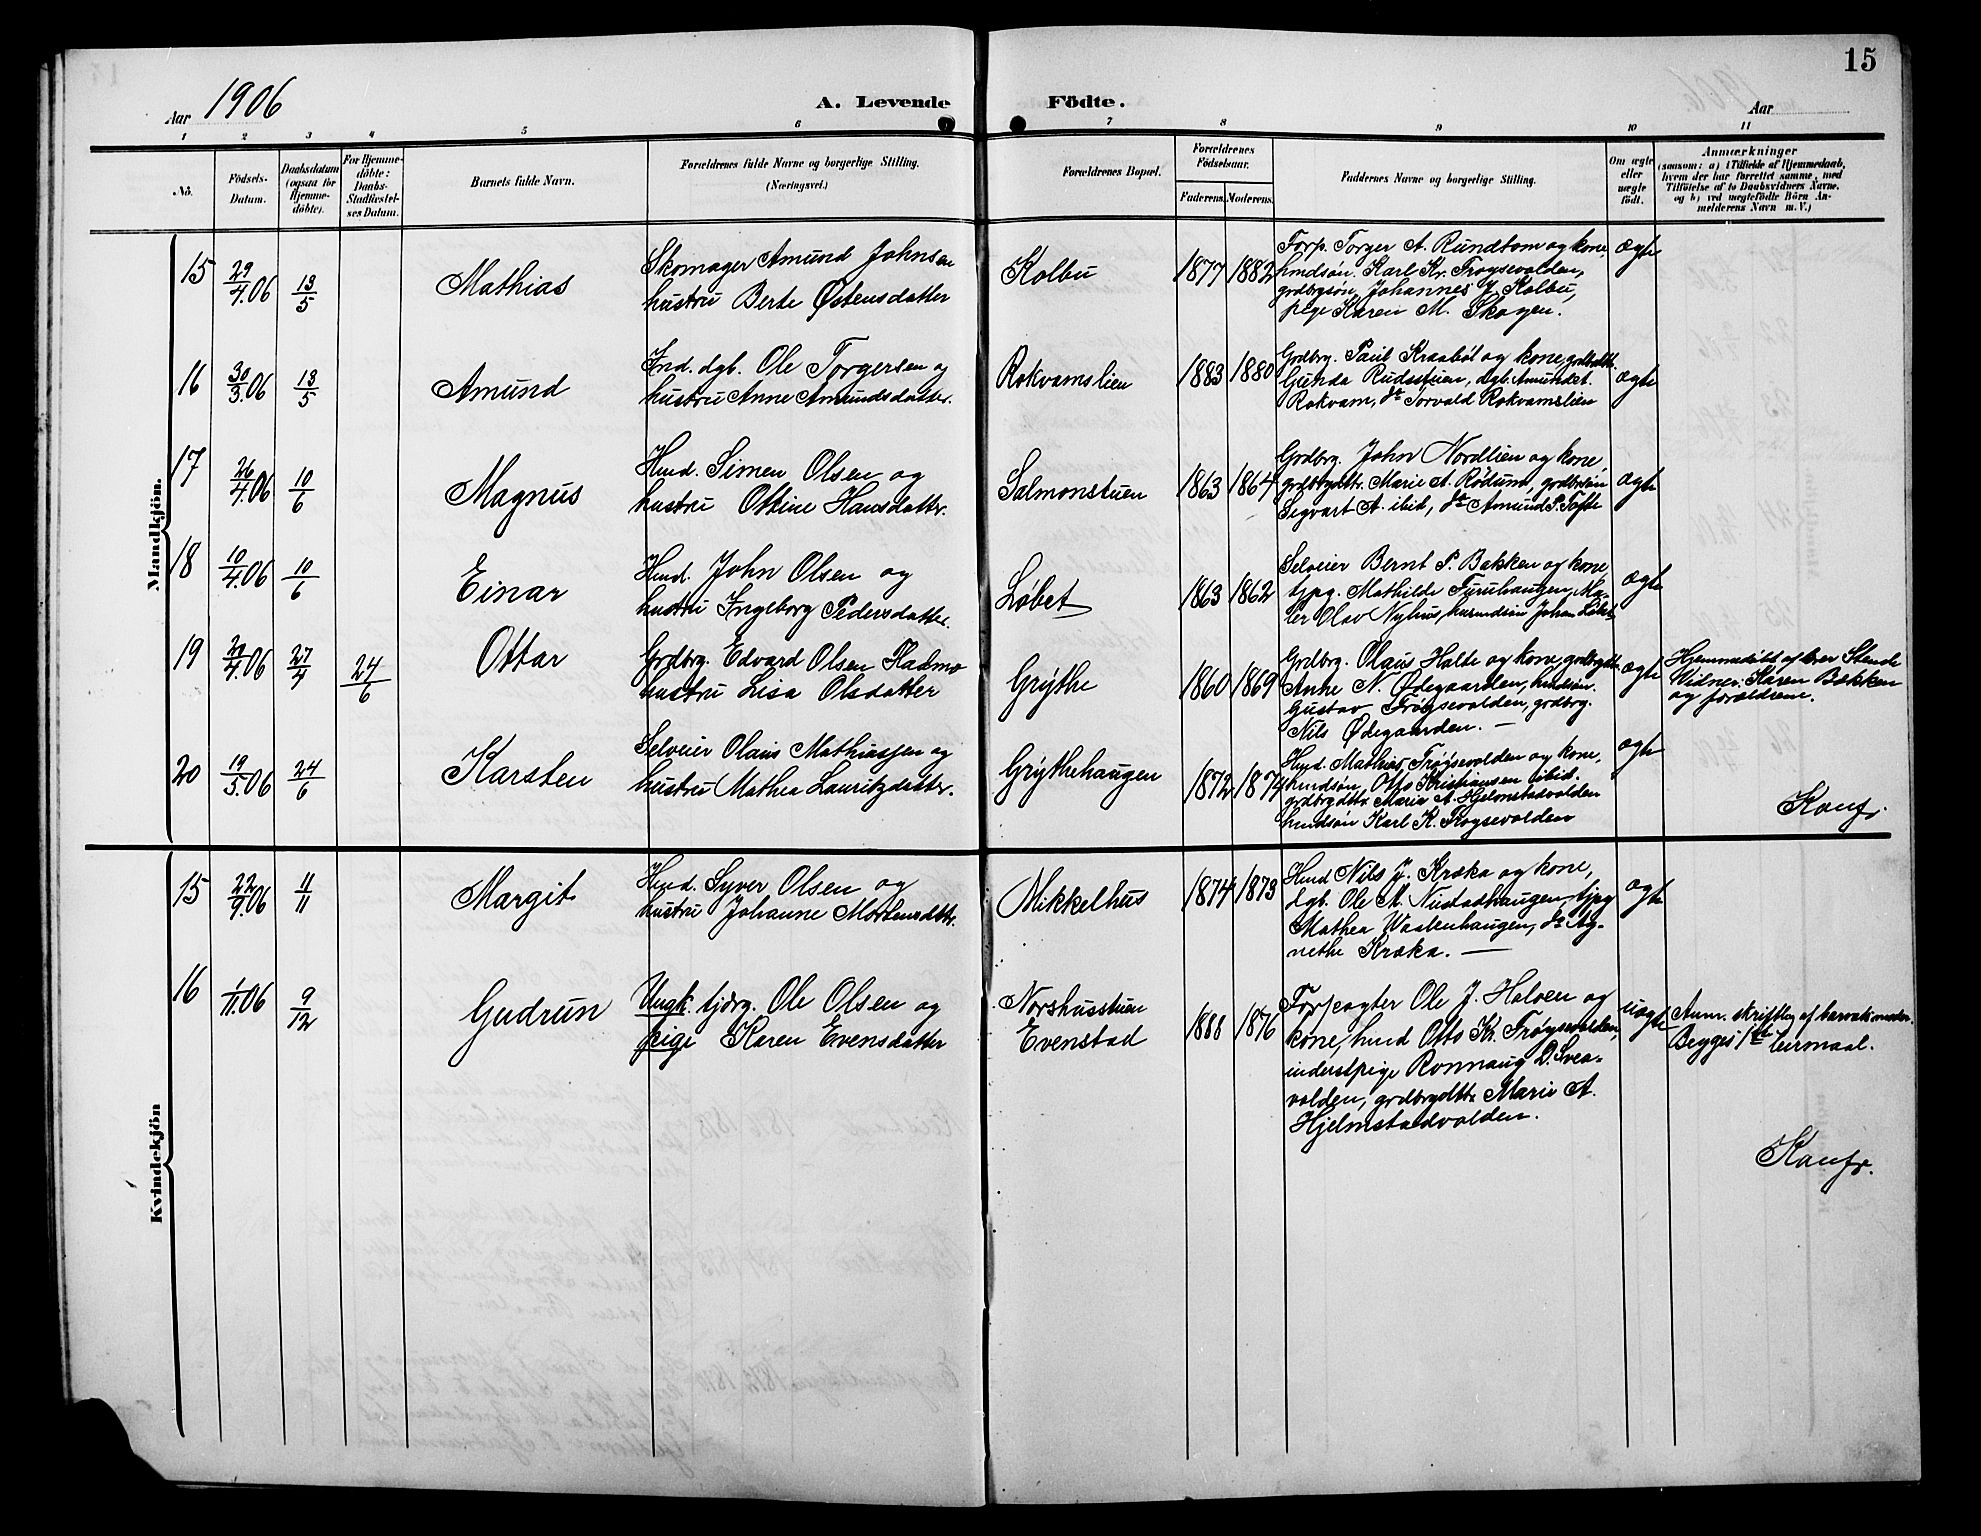 15
Aar 1906
A. Levende Födte.
Aar
1 2 3 4 5 6 7 8 9 10 11
Nō.
Födsels-
Datum.
Daabsdatum
(ogsaa for
Hjemme-
døbte).
For Hjemme-
døbte:
Daabs-
Stadfæstel-
ses Datum.
Barnets fulde Navn.
Forældrenes fulde Navne og borgerlige Stilling.
(Næringsvei.)
Forældrenes Bopæl.
Forældrenes
Fødselsaar.
Faderens. Moderens.
Faddernes Navne og borgerlige Stilling.
Om ægte
eller
uægte
født.
Anmærkninger
(saasom: a) i Tilfælde af Hjemmedaab,
hvem der har forrettet samme, med
Tilføielse af to Daabsvidners Navne,
og b) ved uægtefødte Börn An-
melderens Navn m. V.)
Mandkjön.
15 29/4.06 13/5
Mathias
Skomager Amund Johnsen
hustru Berte Østensdatter
Kolbu
1877 1882
Forp. Torger A. Rundtom og kone,
husdsøn. Karl Kr. Frøysevolden,
grdbrgsøn Johannes J. Kolbu,
pige Karen M. Skogen.
ægte
16 30/3.06 13/5
Amund
Ind. dgb. Ole Torgersen og
hustru Anne Amundsdatter.
Rokvamslien
1883 1880
Grdbrg. Paul Kraabøl og kone, grdbrdtt.
Gunda Rudsstuen, dgb. Amund Et.
Rokvam, do Torvald Rokvamslien
ægte
17 26/4.06 10/6
Magnus
Husd. Simen Olsen og
hustru Ottine Hansdatter.
Salmonstuen
1863 1864
Grdbrg. John Nordlien og kone,
grdbrgdttr. Marie A. Rødum, grdbrsøn
Segvart A. ibid, do Amund P. Tofte
ægte
18 10/4.06 10/6
Einar
Husd. John Olsen og
hustru Ingeborg Pedersdatter.
Løbet
1863 1862
Selveier Bernt P. Bakken og kone
tjpg. Mathilde Furuhaugen, Ma-
ler Olav Nyhus, husmdsøn Johan Løbet
ægte
19 /4.06 27/4 24/6
Ottar
Grdbrg. Edvard Olsen
hustru Lisa Olsdatter
Grythe
1860 1869
Grdbrg. Olaus Holte og kone, grdbrgdtt.
Anne N. Ødegaarden, husdsøn.
Gustav Frøysevolden, grdbrg.
Nils Ødegaarden. —
ægte
Hjemmedøbt af lærer Stende
Vidner: Karen Bakken
og forældrene.
20 19/5.06 24/6
Karsten
Selveier Olaus Mathiassen og
hustru Mathea Lauritzdatter.
Grythehaugen
1872 1874
Husd. Mathias Frøysevolden og kone,
husdsøn Otto Kristiansen ibid.
grdbrgdttr. Marie A. Hjelmstadvolden
husdsøn Karl K. Froysevolden
ægte
Konf.
Kvindekjön
15 22/9.06 11/11
Margit
Husd. Syver Olsen og
hustru Johanne Mortensdttr.
Mikkelhus
1874 1873
Husd Nils J. Kraka og kone,
dgb. Ole M. Nustadhaugen, tjpg
Mathea Waalenhaugen, do Ag-
nethe Kraka. —
ægte
16 1/11.06 9/12
Gudrun
Ungk. tjdrg. Ole Olsen og
pige Karen Evensdatter
Norshusstuen
Evenstad
1888 1876
Forpagter Ole J. Holoen og
kone, husd Otto Kr. Frøysevolden,
inderstpige Ronnaug D. Svea-
volden, grdbrgdttr Marie A.
Hjelmstadvolden.
uægte
Anm. skriftlig af barnets moder.
Begges 1ste leiermaal.
Konfr.